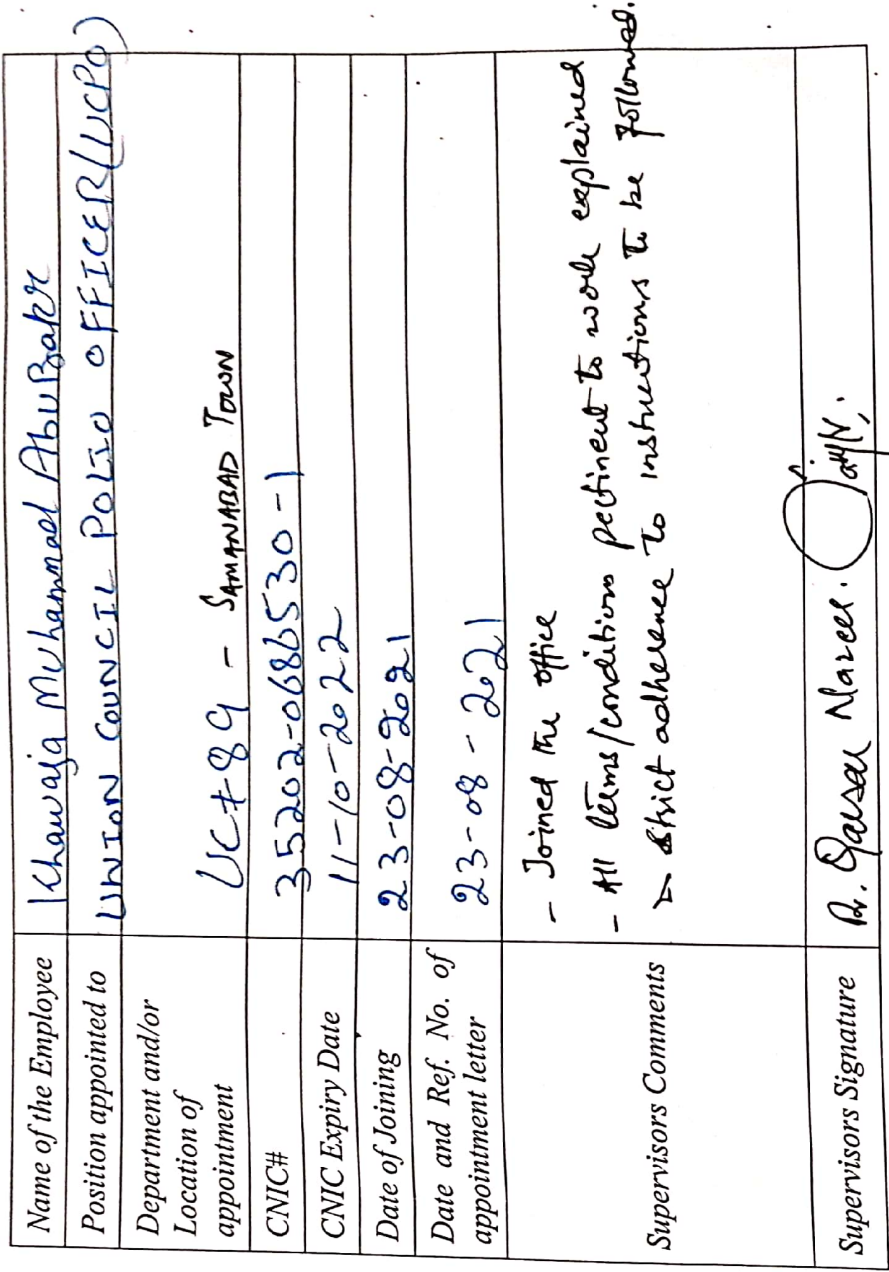 Name of the Employee Khawaja Muhammad AbuBakr
Position appointed to UNION COUNCIL POLIO OFFICER(UCPO)
Department and/or
Location of
appointment UC+89 - SAMANABAD TOWN
CNIC# 35202-0686530-1
CNIC Expiry Date 11-10-2022
Date of Joining 23-08-2021
Date and Ref. No. of
appointment letter 23-08-2021
Supervisors Comments
- Joined the office
- All terms/conditions pertinent to work explained
strict adherence to instructions to be followed.
Supervisors Signature Dr.